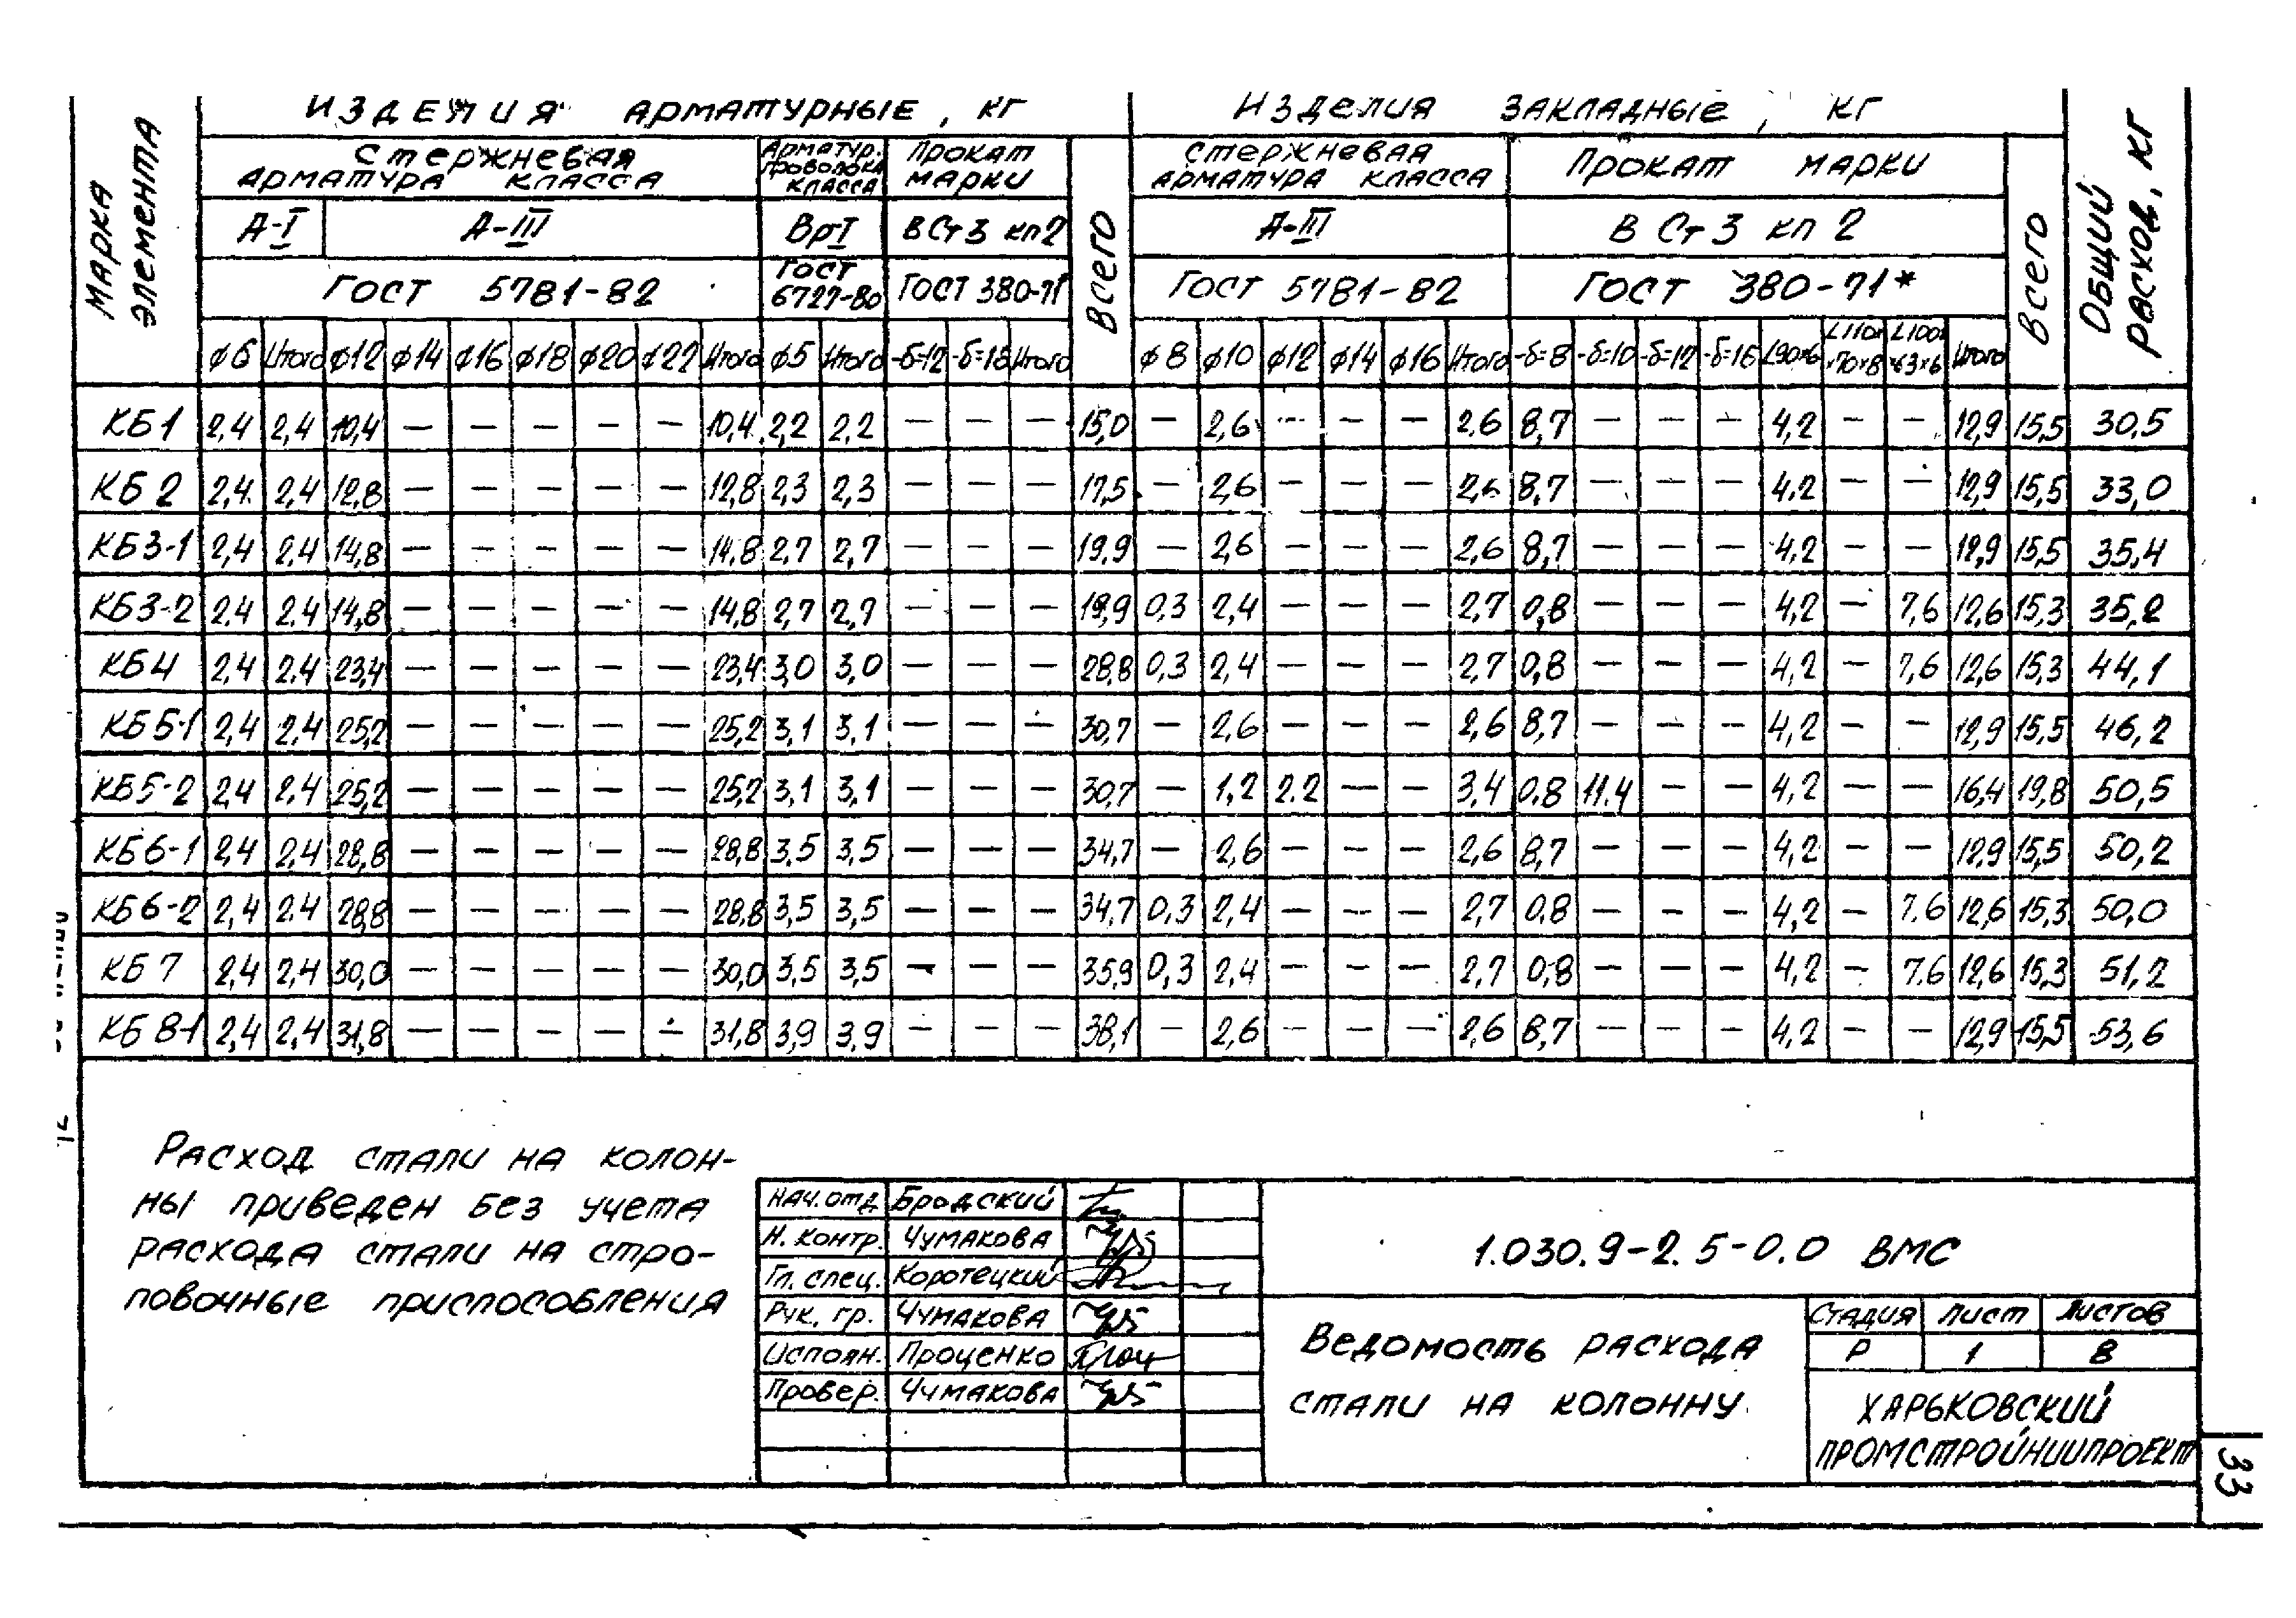 МАРКА ЭЛЕМЕНТА
ИЗДЕЛИЯ АРМАТУРНЫЕ, КГ
ИЗДЕЛИЯ ЗАКЛАДНЫЕ, КГ
ОБЩИЙ РАСХОД, КГ
СТЕРЖНЕВАЯ АРМАТУРА КЛАССА
АРМАТУР. ПРОВОЛОКА КЛАССА
ПРОКАТ МАРКИ
ВСЕГО
СТЕРЖНЕВАЯ АРМАТУРА КЛАССА
ПРОКАТ МАРКИ
ВСЕГО
А-I А-III ВрI ВСт3 кп2 А-III ВСт3 кп2
ГОСТ 5781-82 ГОСТ 6727-80 ГОСТ 380-71 ГОСТ 5781-82 ГОСТ 380-71*
φ6 Итого φ12 φ14 φ16 φ18 φ20 φ22 Итого φ5 Итого -δ=12 -δ=16 Итого φ8 φ10 φ12 φ14 φ16 Итого -δ=8 -δ=10 -δ=12 -δ=16 L90×6 L110×70×8 L100×63×6 Итого
КБ1 2,4 2,4 10,4 — — — — — 10,4 2,2 2,2 — — — 15,0 — 2,6 — — — 2,6 8,7 — — — 4,2 — — 12,9 15,5 30,5
КБ2 2,4 2,4 12,8 — — — — — 12,8 2,3 2,3 — — — 17,5 — 2,6 — — — 2,6 8,7 — — — 4,2 — — 12,9 15,5 33,0
КБ3-1 2,4 2,4 14,8 — — — — — 14,8 2,7 2,7 — — — 19,9 — 2,6 — — — 2,6 8,7 — — — 4,2 — — 12,9 15,5 35,4
КБ3-2 2,4 2,4 14,8 — — — — — 14,8 2,7 2,7 — — — 19,9 0,3 2,4 — — — 2,7 0,8 — — — 4,2 — 7,6 12,6 15,3 35,2
КБ4 2,4 2,4 23,4 — — — — — 23,4 3,0 3,0 — — — 28,8 0,3 2,4 — — — 2,7 0,8 — — — 4,2 — 7,6 12,6 15,3 44,1
КБ5-1 2,4 2,4 25,2 — — — — — 25,2 3,1 3,1 — — — 30,7 — 2,6 — — — 2,6 8,7 — — — 4,2 — — 12,9 15,5 46,2
КБ5-2 2,4 2,4 25,2 — — — — — 25,2 3,1 3,1 — — — 30,7 — 1,2 2.2 — — 3,4 0,8 11.4 — — 4,2 — — 16,4 19,8 50,5
КБ6-1 2,4 2,4 28,8 — — — — — 28,8 3,5 3,5 — — — 34,7 — 2,6 — — — 2,6 8,7 — — — 4,2 — — 12,9 15,5 50,2
КБ6-2 2,4 2,4 28,8 — — — — — 28,8 3,5 3,5 — — — 34,7 0,3 2,4 — — — 2,7 0,8 — — — 4,2 — 7,6 12,6 15,3 50,0
КБ7 2,4 2,4 30,0 — — — — — 30,0 3,5 3,5 — — — 35,9 0,3 2,4 — — — 2,7 0,8 — — — 4,2 — 7,6 12,6 15,3 51,2
КБ8-1 2,4 2,4 31,8 — — — — — 31,8 3,9 3,9 — — — 38,1 — 2,6 — — — 2,6 8,7 — — — 4,2 — — 12,9 15,5 53,6
РАСХОД СТАЛИ НА КОЛОН-
НЫ ПРИВЕДЕН БЕЗ УЧЕТА
РАСХОДА СТАЛИ НА СТРО-
ПОВОЧНЫЕ ПРИСПОСОБЛЕНИЯ
НАЧ.ОТД БРОДСКИЙ
Н. КОНТР. ЧУМАКОВА
ГЛ. СПЕЦ. КОРОТЕЦКИЙ
РУК. ГР. ЧУМАКОВА
ИСПОЛН. ПРОЦЕНКО
ПРОВЕР. ЧУМАКОВА
1.030.9-2.5-0.0 ВМС
ВЕДОМОСТЬ РАСХОДА
СТАЛИ НА КОЛОННУ
СТАДИЯ ЛИСТ ЛИСТОВ
Р 1 8
ХАРЬКОВСКИЙ
ПРОМСТРОЙНИИПРОЕКТ
33